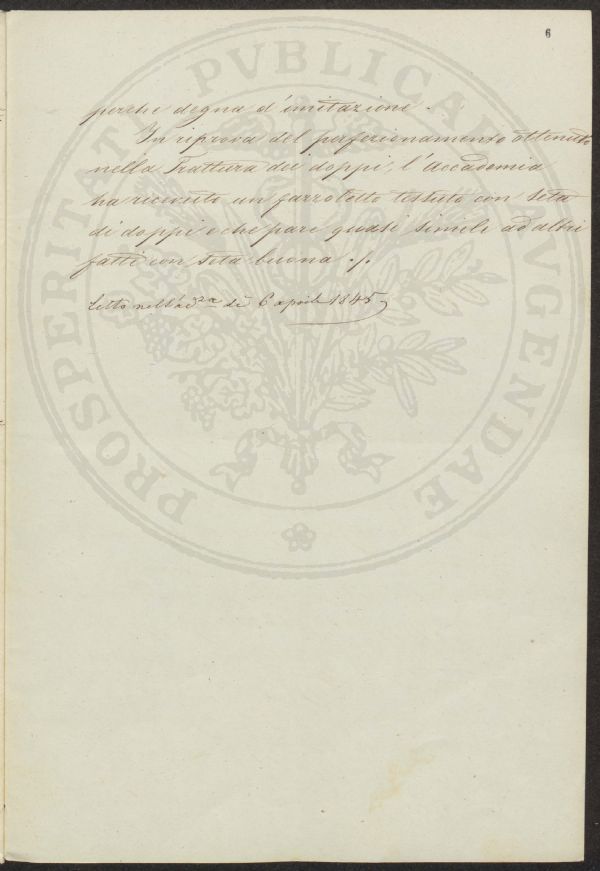 6
perche degna d'imitazione.
In riprova del perfezionamento ottenuto
nella Trattura dei doppi, l'Accademia
ha ricevuto un fazzoletto tessuto con seta
di doppi e che pare quasi simile ad altri
fatti con seta buona ./.
Letto nell'ad.za de 6 aprile 1845
PROSPERITATI PVBLICAE AVGENDAE